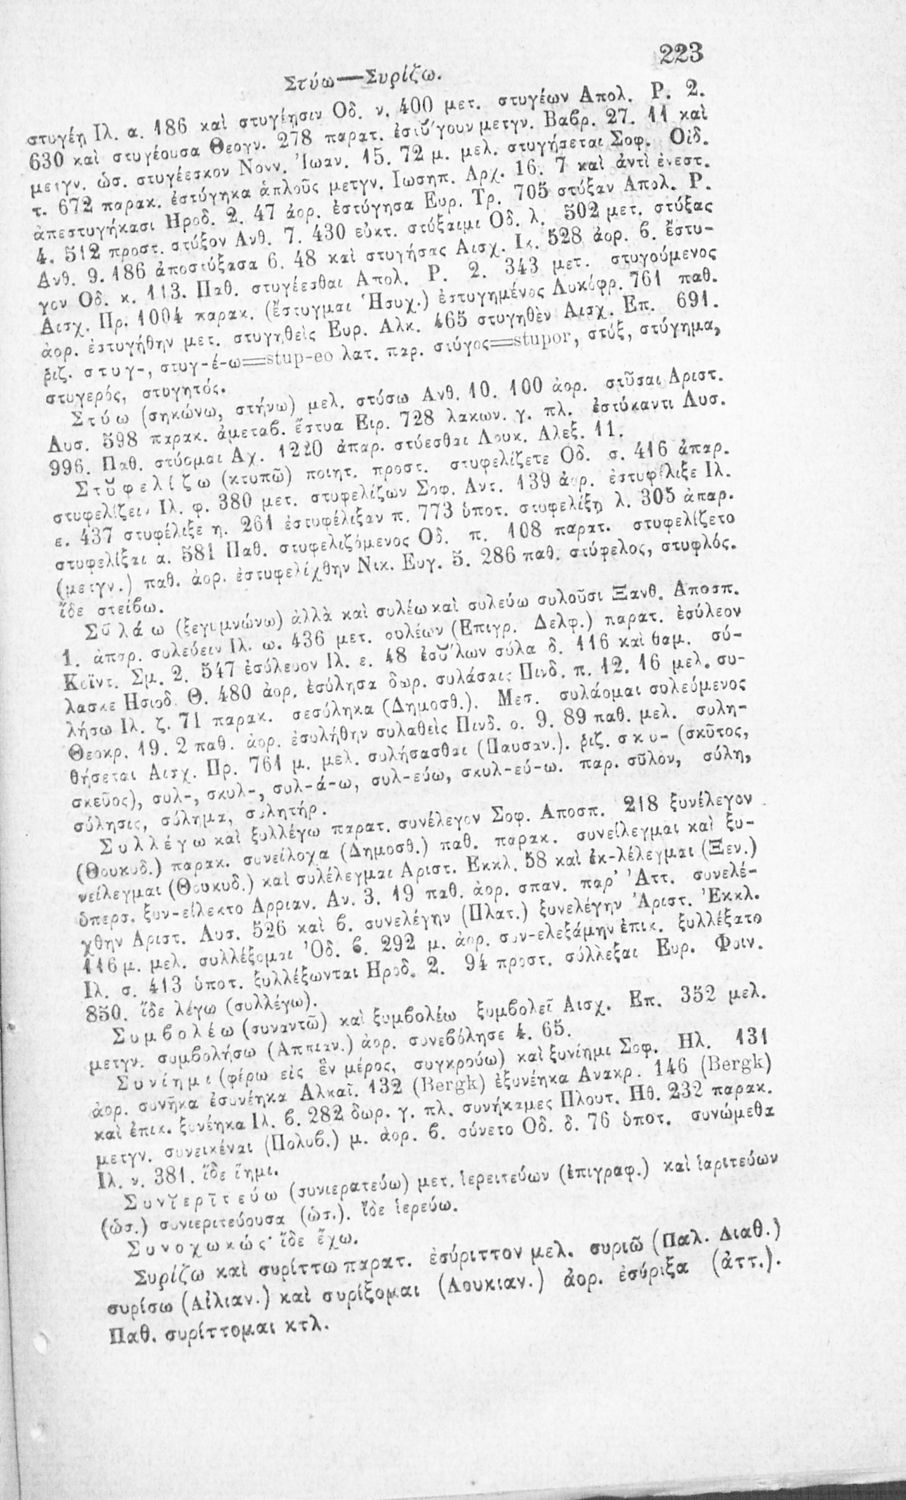 223
Στύω—Συρίζω.
στυγέῃ Ιλ. α. 186 καὶ στυγίησιν Οδ. ν. 400 μετ. στυγέων Απολ. Ρ. 2.
630 καὶ στυγέουσα Θεογν. 278 παρατ. ἐστύγουν μετγν. Βαβρ. 27. 11 καὶ
μετγν. ὡσ. στυγέεσκον Νονν. Ἰωαν. 15. 72 μ. μελ. στυγήσεται Σοφ. Οἰδ.
τ. 672 παρακ. ἐστύγηκα ἁπλοῦς μετγν. Ιωσηπ. Αρχ. 16. 7 καὶ ἀντὶ ἐνεστ.
ἀπεστυγήκασι Ηροδ. 2. 47 ἀορ. ἐστύγησα Ευρ. Τρ. 705 στύξαν Απολ. Ρ.
4. 512 προστ. στύξον Ανθ. 7. 430 εὐκτ. στύξαιμι Οδ. λ. 502 μετ. στύξας
Ανθ. 9. 186 ἀποστύξασα 6. 48 καὶ στυγήσας Αισχ. Ικ. 528 ἀορ. β. ἔστυ-
γον Οδ. κ. 113. Παθ. στυγέεσθαι Απολ. Ρ. 2. 343 μετ. στυγούμενος
Αισχ. Πρ. 1004 παρακ. (ἔστυγμαι Ἡσυχ.) ἐστυγημένος Λυκόφρ. 761 παθ.
ἀορ. ἐστυγήθην μετ. στυγηθεὶς Ευρ. Αλκ. 465 στυγηθὲν Αισχ. Επ. 691.
ῥιζ. στυγ-, στυγ-έ-ω=stup-eo λατ. παρ. στύγος=stupor, στύξ, στύγημα,
στυγερός, στυγητός.
Στύω (σηκώνω, στήνω) μελ. στύσω Ανθ. 10. 100 ἀορ. στῦσαι Αριστ.
Λυσ. 598 παρακ. ἀμεταβ. ἔστυα Ειρ. 728 λακων. γ. πλ. ἐστύκαντι Λυσ.
996. Παθ. στύομαι Αχ. 1220 ἀπαρ. στύεσθαι Λουκ. Αλεξ. 11.
Στυφελίζω (κτυπῶ) ποιητ. προστ. στυφελίζετε Οδ. σ. 416 ἀπαρ.
στυφελίζειν Ιλ. φ. 380 μετ. στυφελίζων Σοφ. Αντ. 139 ἀορ. ἐστυφέλιξε Ιλ.
ε. 437 στυφέλιξε η. 261 ἐστυφέλιξαν π. 773 ὑποτ. στυφελίξῃ λ. 305 ἀπαρ.
στυφελίξαι α. 581 Παθ. στυφελιζόμενος Οδ. π. 108 παρατ. στυφελίζετο
(μετγν.) παθ. ἀορ. ἐστυφελίχθην Νικ. Ευγ. 5. 286 παθ. στύφελος, στυφλός.
ἴδε στείβω.
Συλάω (ξεγυμνώνω) ἀλλὰ καὶ συλέω καὶ συλεύω συλοῦσι Ξανθ. Αποσπ.
1. ἀπαρ. συλεύειν Ιλ. ω. 436 μετ. συλέων (Επιγρ. Δελφ.) παρατ. ἐσύλεον
Κοϊντ. Σμ. 2. 547 ἐσύλευον Ιλ. ε. 48 ἐσύλων σύλα δ. 116 καὶ θαμ. σύ-
λασκε Ησιοδ. Θ. 480 ἀορ. ἐσύλησα δωρ. συλάσαις Πινδ. π. 12. 16 μελ. συ-
λήσω Ιλ. ζ. 71 παρακ. σεσύληκα (Δημοσθ.). Μεσ. συλάομαι συλεύμενος
Θεοκρ. 19. 2 παθ. ἀορ. ἐσυλήθην συλαθεὶς Πινδ. ο. 9. 89 παθ. μελ. συλη-
θήσεται Αισχ. Πρ. 761 μ. μελ. συλήσασθαι (Παυσαν.). ῥιζ. σκυ- (σκῦτος,
σκεῦος), συλ-, σκυλ-, συλ-ά-ω, συλ-εύω, σκυλ-εύ-ω. παρ. σῦλον, σύλη,
σύλησις, σύλημα, συλητήρ.
Συλλέγω καὶ ξυλλέγω παρατ. συνέλεγον Σοφ. Αποσπ. 218 ξυνέλεγον
(Θουκυδ.) παρακ. συνείλοχα (Δημοσθ.) παθ. παρακ. συνείλεγμαι καὶ ξυ-
νείλεγμαι (Θουκυδ.) καὶ συλέλεγμαι Αριστ. Εκκλ. 58 καὶ ἐκ-λέλεγμαι (Ξεν.)
ὑπερσ. ξυν-είλεκτο Αρριαν. Αν. 3. 19 παθ. ἀορ. σπαν. παρ' Ἀττ. συνελέ-
χθην Αριστ. Λυσ. 526 καὶ β. συνελέγην (Πλατ.) ξυνελέγην Ἀριστ. Ἐκκλ.
116 μ. μελ. συλλέξομαι Ὀδ. β. 292 μ. ἀορ. συν-ελεξάμην ἐπικ. ξυλλέξατο
Ιλ. σ. 413 ὑποτ. ξυλλέξωνται Ηροδ. 2. 94 προστ. σύλλεξαι Ευρ. Φοιν.
850. ἴδε λέγω (συλλέγω).
Συμβολέω (συναντῶ) καὶ ξυμβολέω ξυμβολεῖ Αισχ. Επ. 352 μελ.
μετγν. συμβολήσω (Αππιαν.) ἀορ. συνεβόλησε 4. 65.
Συνίημι (φέρω εἰς ἓν μέρος, συγκρούω) καὶ ξυνίημι Σοφ. Ηλ. 131
ἀορ. συνῆκα ἐσυνέηκα Αλκαῖ. 132 (Bergk) ἐξυνέηκα Ανακρ. 146 (Bergk)
καὶ ἐπικ. ξυνέηκα Ιλ. β. 282 δωρ. γ. πλ. συνήκαμες Πλουτ. Ηθ. 232 παρακ.
μετγν. συνεικέναι (Πολυβ.) μ. ἀορ. β. σύνετο Οδ. δ. 76 ὑποτ. συνώμεθα
Ιλ. ν. 381. ἴδε ἵημι.
Συνϊερῑτεύω (συνιερατεύω) μετ. ἱερειτεύων (ἐπιγραφ.) καὶ ἱαριτεύων
(ὡσ.) συνιεριτεύουσα (ὡσ.). ἴδε ἱερεύω.
Συνοχωκώς· ἴδε ἔχω.
Συρίζω καὶ συρίττω παρατ. ἐσύριττον μελ. συριῶ (Παλ. Διαθ.)
συρίσω (Αἰλιαν.) καὶ συρίξομαι (Λουκιαν.) ἀορ. ἐσύριξα (ἀττ.).
Παθ. συρίττομαι κτλ.